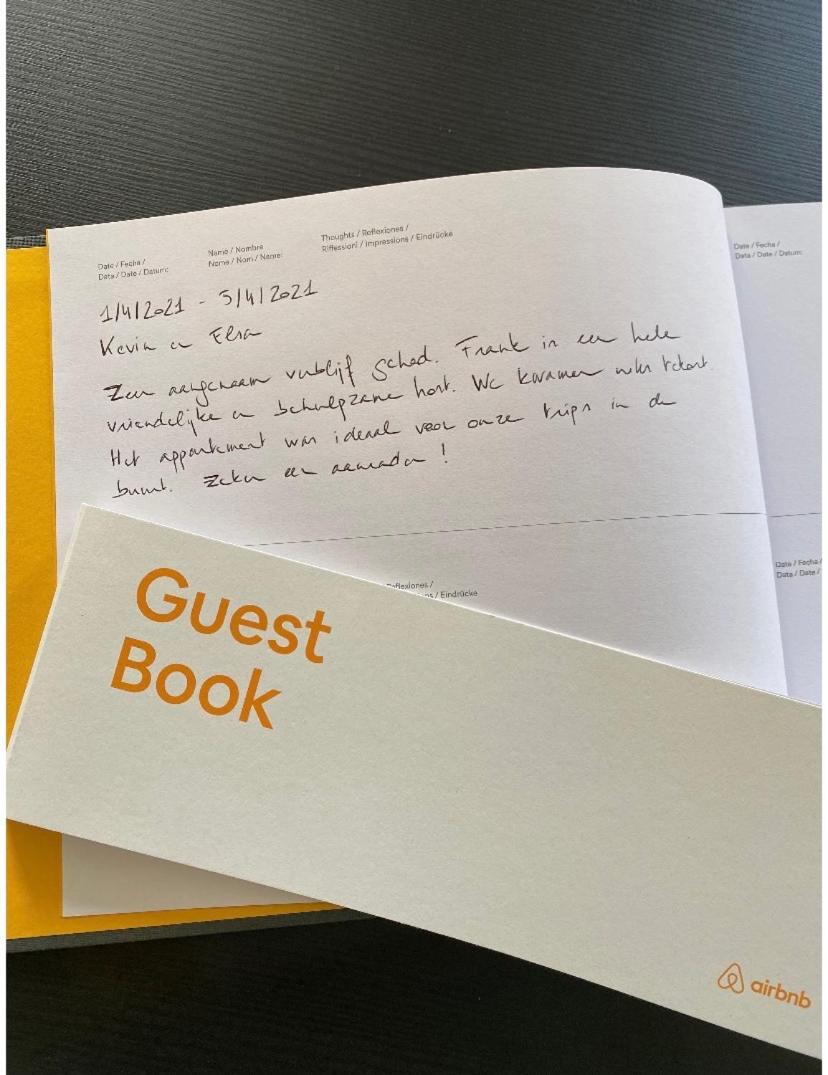 Date / Fecha /
Data / Date / Datum:
Name / Nombre
Nome / Nom / Name:
Thoughts / Reflexiones /
Riflessioni / Impressions / Eindrücke
1/4/2021 - 5/4/2021
Kevin en Elsa
Zeer aangenaam verblijf gehad. Frank is een hele
vriendelijke en behulpzame host. We kwamen niks tekort.
Het appartement was ideaal voor onze trips in de
buurt. Zeker een aanrader!
Date / Fecha /
Data / Date / Datum:
Reflexiones /
/ Eindrücke
Date / Fecha /
Data / Date /
Guest
Book
airbnb